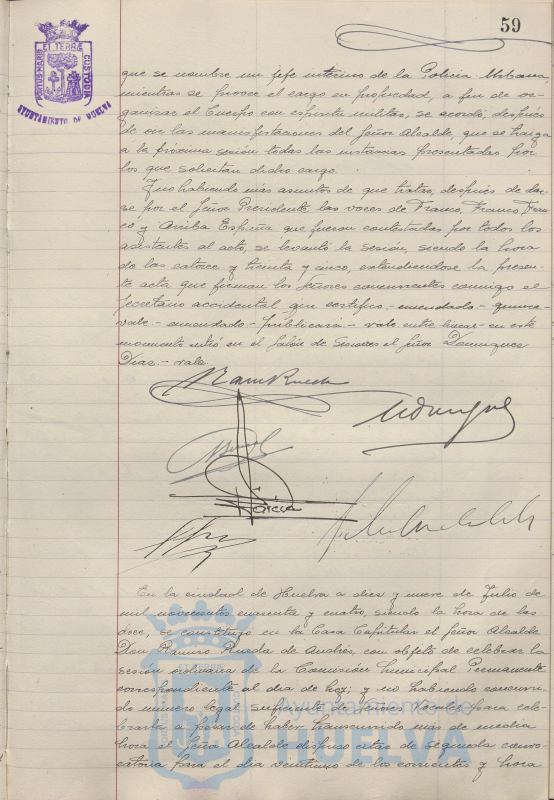 59
PORTUS MARIS ET TERRÆ CUSTODIA
AYUNTAMIENTO DE HUELVA
que se nombre un jefe interino de la Policía Urbana,
mientras se provee el cargo en propiedad, a fin de or-
ganizar el Cuerpo con espíritu militar, se acordó, después
de oir las manifestaciones del Señor Alcalde, que se traiga
a la próxima sesión todas las instancias presentadas por
los que solicitan dicho cargo.
Y no habiendo más asuntos de que tratar, después de dar-
se por el Señor Presidente las voces de Franco, Franco, Fran-
co y Arriba España que fueron contestadas por todos los
asistentes al acto, se levantó la sesión, siendo la hora
de las catorce y treinta y cinco, extendiéndose la presen-
te acta que firman los señores concurrentes conmigo el
Secretario accidental que certifico.- enmendado -
vale - enmendado - publicación - vale entre lineas - en este
momento entró en el Salón de Sesiones el Señor Domínguez
Díaz. - vale.
García
En la ciudad de Huelva a diez y nueve de Julio de
mil novecientos cuarenta y cuatro, siendo la hora de las
doce, se constituyó en la Casa Capitular el Señor Alcalde
Don Ramiro Rueda de Andrés, con objeto de celebrar la
sesión ordinaria de la Comisión Municipal Permanente
correspondiente al día de hoy; y no habiendo concurri-
do número legal suficiente de señores Vocales para cele-
brarla a pesar de haber transcurrido más de media
hora el Señor Alcalde dispuso citar de segunda convo-
catoria para el día veintiuno de los corrientes y hora
Ayuntamiento de
HUELVA